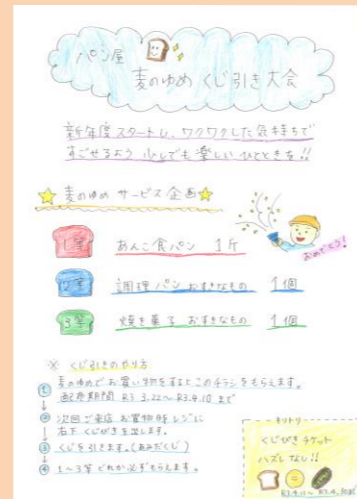 パン屋
麦のゆめ くじ引き大会
新年度スタートし、ワクワクした気持ちで
すごせるよう 少しでも楽しいひとときを!!
麦のゆめ サービス企画
おめでとう!
1等 あんこ食パン 1斤
2等 調理パン おすきなもの 1個
3等 焼き菓子 おすきなもの 1個
※ くじ引きのやり方
① 麦のゆめでお買い物をするとこのチラシをもらえます。
配布期間 R3 3.22〜R3.4.10 まで
② 次回ご来店 お買物時 レジに
右下 くじびきを出します。
③ くじを引きます。(あみだくじ)
④ 1〜3等 どれか必ずもらえます。
キリトリ
くじびき チケット
ハズレなし!!